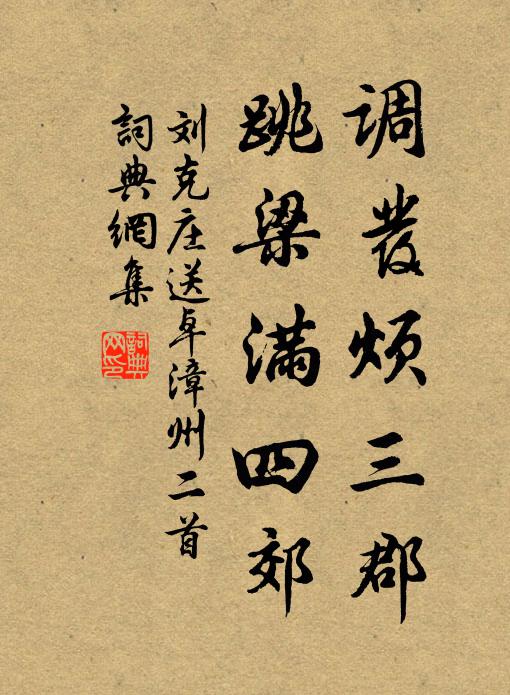 调發烦三郡
跳梁满四郊
刘克庄送卓漳州二首
詞典網集
詞典网印